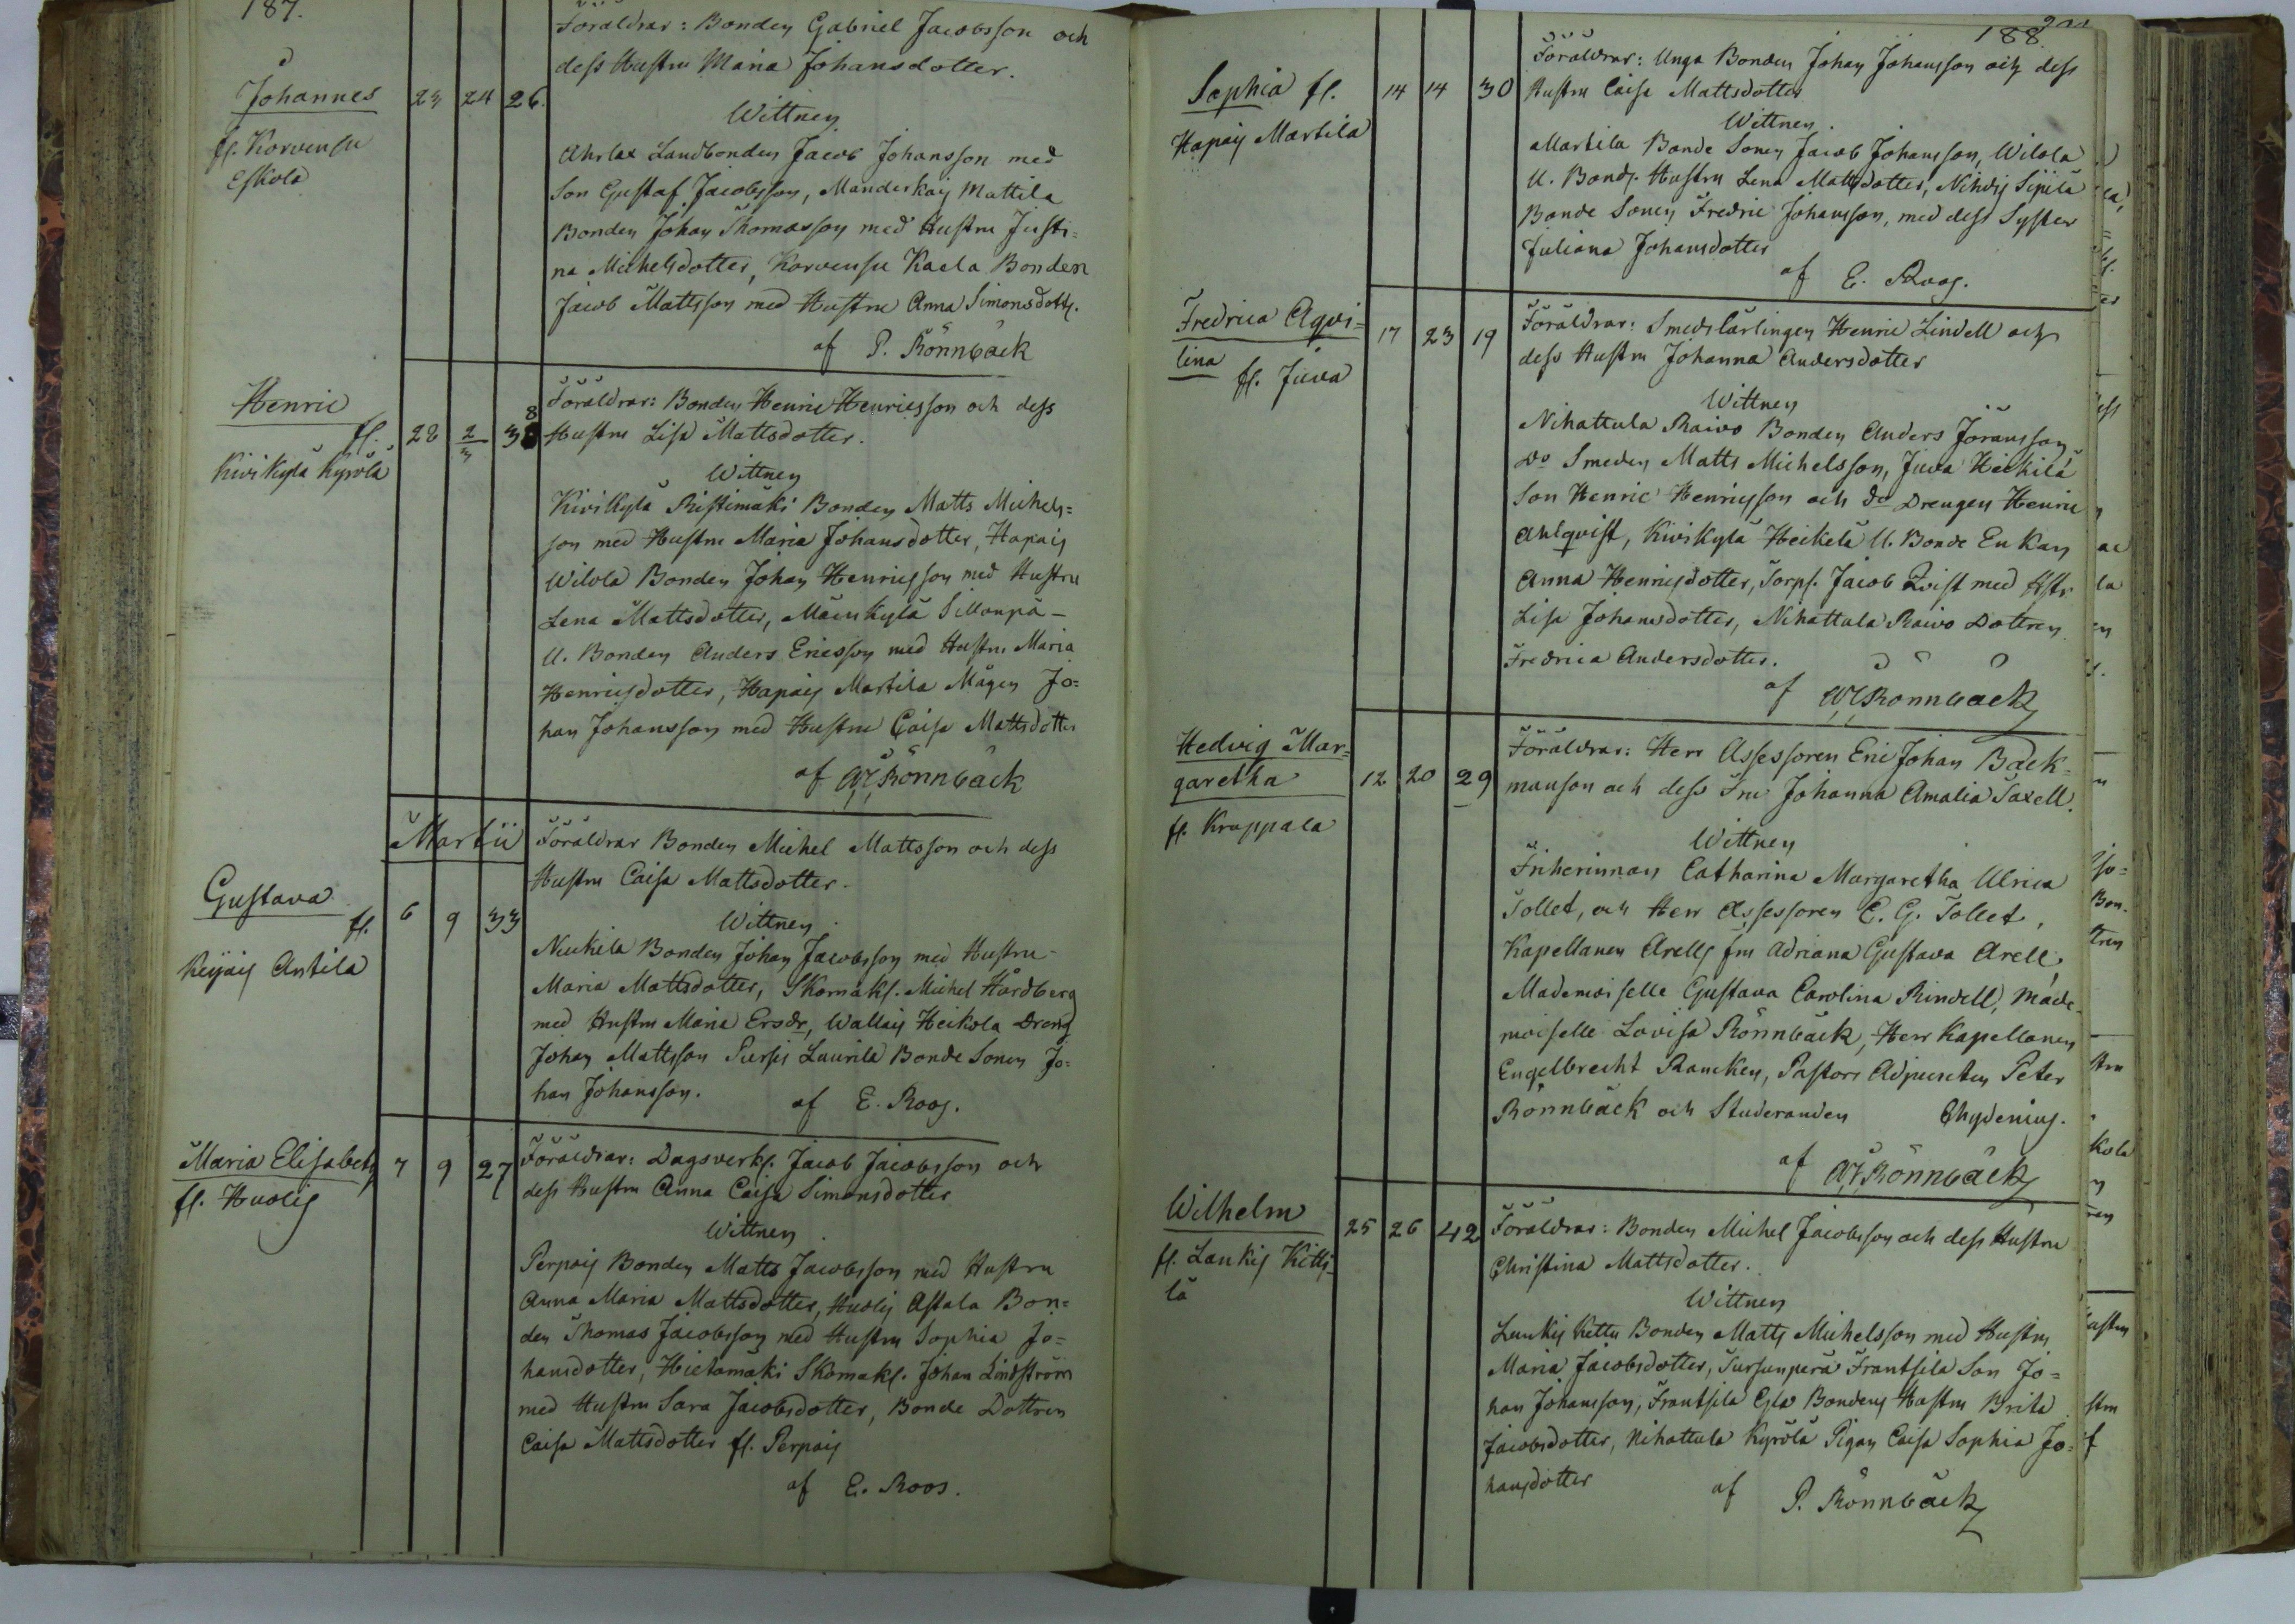 187.
Johannes
fl. Korvensu
Eskola
23 24 26.
Föräldrar: Bonden Gabriel Jacobsson och
dess Hustru Maria Johansdotter.
Wittnen
Ahrlax Landbonden Jacob Johansson med
Son Gustaf Jacobsson, Manderkaij Mattila
Bonden Johan Thomasson med Hustru Justi=
na Michelsdotter, Korvensu Kaela Bonden
Jacob Mattsson med Hustru Anna Simonsdottr.
af P. Rönnbäck
Henric
fl.
Kivikylä Kyrölä
28 2/3 38
Föräldrar: Bonden Henric Henricsson och dess
Hustru Lisa Mattsdotter.
Wittnen
Kivikylä Ristimäki Bonden Matts Michels=
son med Hustru Maria Johansdotter, Hapaij
Wilola Bonden Johan Henricsson med Hustru
Lena Mattsdotter, Mäenkylä Sillanpä-
U. Bonden Anders Ericsson med Hustru Maria
Henricsdotter, Hapaij Martila Mågen Jo=
han Johansson med Hustru Caisa Mattsdotter
af Rönnbäck
Martii
Gustava
fl.
Keijäij Antila
6 9 33
Föräldrar Bonden Michel Mattsson och dess
Hustru Caisa Mattsdotter.
Wittnen
Nuckila Bonden Johan Jacobsson med Hustru
Maria Mattsdotter, Skomakl. Michel Hårdberg
med Hustru Maria Ersdr, Wallaij Heikola Dreng
Johan Mattsson Pursis Laurila Bonde Sonen Jo=
han Johansson.
af E. Roos.
Maria Elisabeth
fl. Huolij
7 9 27
Föräldrar: Dagsverkl. Jacob Jacobsson och
dess Hustru Anna Caisa Simonsdotter
Wittnen
Perpaij Bonden Matts Jacobsson med Hustru
Anna Maria Mattsdotter, Huolij Astala Bon=
den Thomas Jacobsson med Hustru Sophia Jo=
hansdotter, Hietamäki Skomakl. Johan Lindström
med Hustru Sara Jacobsdotter, Bonde Dottren
Caisa Mattsdotter fl. Perpaij
af E. Roos.
188.
Sophia fl.
Hapaij Martila
14 14 30
Föräldrar: Unga Bonden Johan Johansson och dess
Hustru Caisa Mattsdotter
Wittnen.
Martila Bonde Sonen Jacob Johansson, Wilola
U. Bonds. Hustru Lena Mattsdotter, Nihdij Sipilä
Bonde Sonen Fredric Johansson, med dess Syster
Juliana Johansdotter
af E. Roos.
Fredrica Aqvi=
lina
fl. Juva
17 23 19
Föräldrar: Smedslärlingen Henric Lindell och
dess Hustru Johanna Andersdotter
Wittnen
Nihattula Raivo Bonden Anders Jöransson
Do Smeden Matts Michelsson, Juva Heikilä
Son Henric Henricsson och do Drengen Henric
Ahlqvist, Kivikylä Heikelä U. Bonde Enkan
Anna Henricsdotter, Torps. Jacob Qvist med Hstr
Lisa Johansdotter, Nihattula Raivo Dottren
Fredrica Andersdotter.
af Rönnbäck
Hedvig Mar=
garetha
fl. Kruppala
12 20 29
Föräldrar: Herr Assessoren Eric Johan Back=
manson och dess Fru Johanna Amalia Taxell.
Wittnen
Friherinnan Catharina Margaretha Ulrica
Tollet, och Herr Assessoren E. G. Tollet,
Kapellanen Arells fru Adriana Gustava Arell,
Mademoiselle Gustava Carolina Rindell, Made=
moiselle Lovisa Rönnbäck, Herr Kapellanen
Engelbrecht Rancken, Pastors Adjuncten Peter
Rönnbäck och Studeranden Chydenius.
af Rönnbäck
Wilhelm
fl. Laukij Kitti=
lä
25 26 42
Föräldrar: Bonden Michel Jacobsson och dess Hustru
Christina Mattsdotter.
Wittnen
Laukij Kettu Bonden Matts Michelsson med Hustru
Maria Jacobsdotter, Tursunperä Frantsila Son Jo=
han Johansson, Frantsila Gla Bondens Hustru Brita
Jacobsdotter, Nihattula Kyrölä Pigan Caisa Sophia Jo=
hansdotter
af P. Rönnbäck